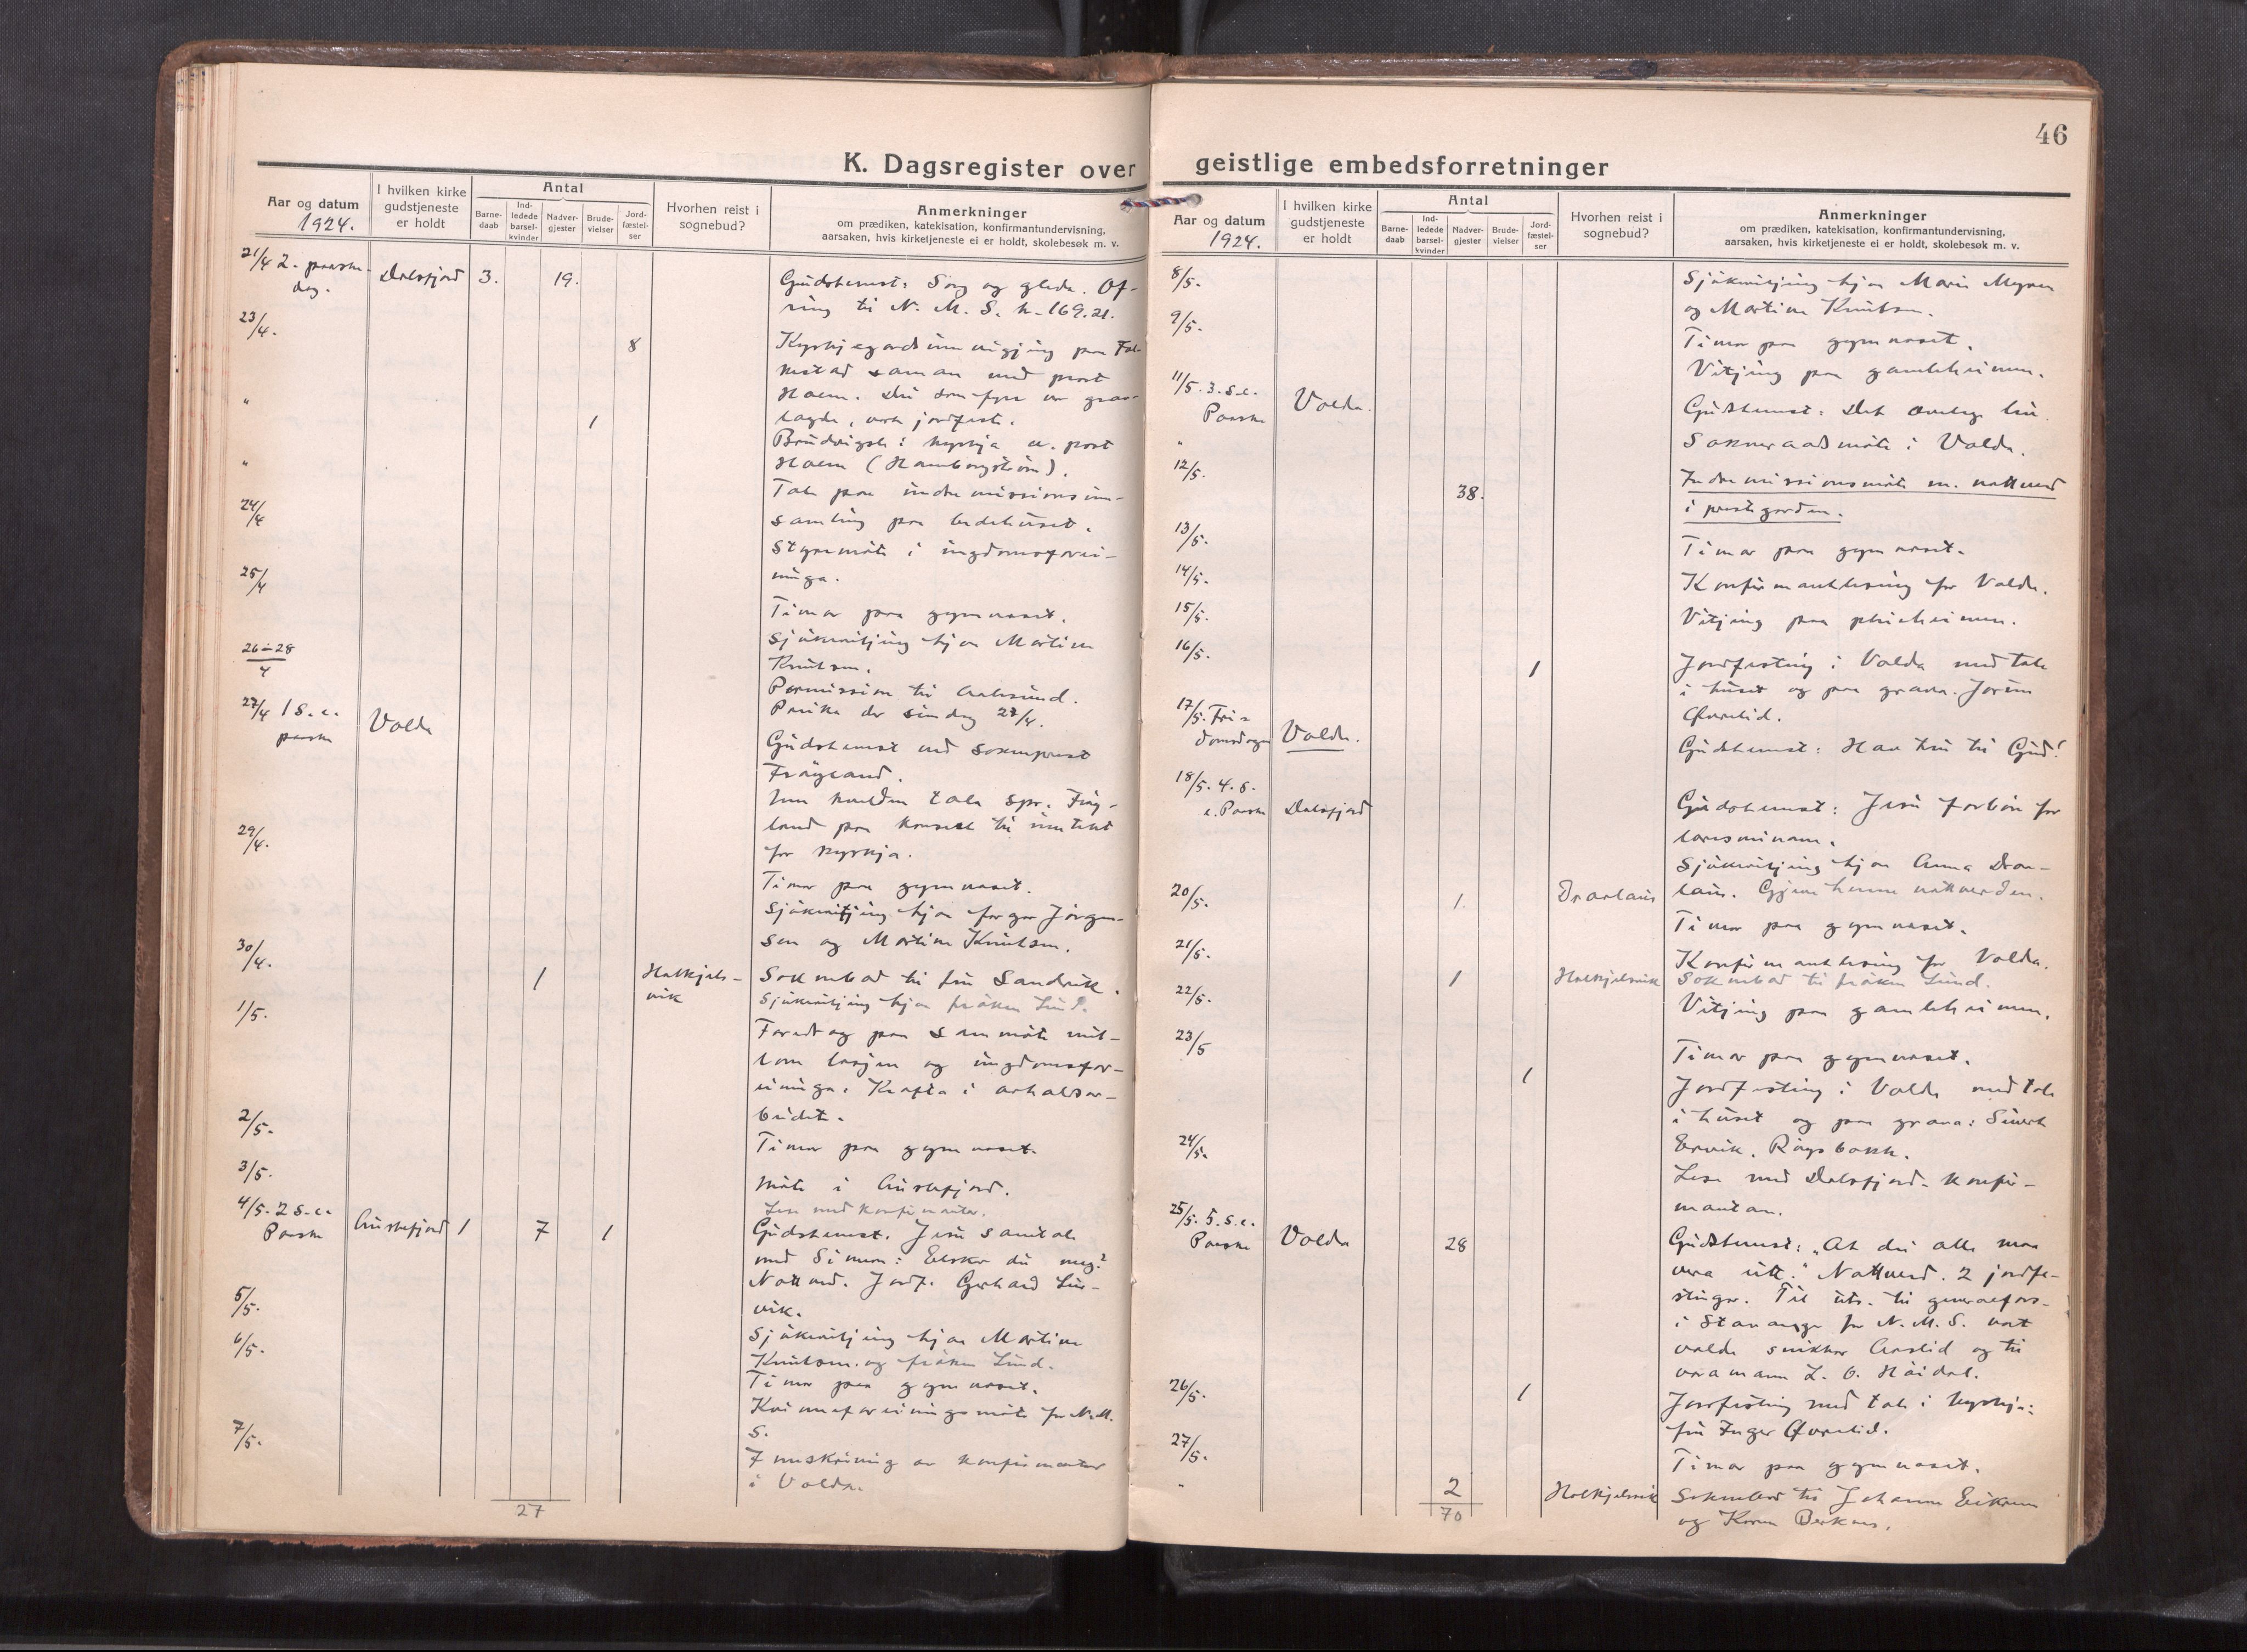 K. Dagsregister over
Aar og datum
1924.
I hvilken kirke
gudstjeneste
er holdt
Antal
Barne-
daab
Ind-
ledede
barsel-
kvinder
Nadver-
gjester
Brude-
vielser
Jord-
fæstel-
ser
Hvorhen reist i
sognebud?
Anmerkninger
om prædiken, katekisation, konfirmantundervisning,
aarsaken, hvis kirketjeneste ei er holdt, skolebesøk m. v.
21/4 2. paaske-
dag.
Dalsfjord 3. 19.
Gudstenest: Sorg og glede. Of-
ring til N. M. S. kr. 169.21.
23/4.
8
Kyrkjegardsinnvigjing paa
saman med prost
Dei som fyrr var grav-
lagde, vart jordfest.
" 1
Brudvigsle i kyrkja av prost
"
Tale paa indremisjonsinn-
samling paa bedehuset.
24/4
Styremøte i ungdomsforei-
ninga.
25/4
Timar paa gymnaset.
Sjukevitjing hjaa Martine
Knutsen.
26-28/4
Permission til Aalesund.
Preika der sundag 27/4.
27/4 1 S. e.
paaske
Volda
Gudstenest ved sokneprest
Frøyland.
Um kvelden tala spr. Frøy-
land paa konsert til inntekt
for kyrkja.
29/4.
Timar paa gymnaset.
Sjukevitjing hjaa Jørgen-
sen og Martine Knutsen.
30/4.
1 Halkjels-
vik
Soknebod til fru Sandvik.
Sjukevitjing hjaa frøken Lund.
1/5.
Foredrag paa sammøte mil-
lom losjen og ungdomsfor-
eininga: Krafta i avhaldsar-
beidet.
2/5.
Timar paa gymnaset.
3/5.
Møte i Austefjord.
Lese med konfirmantar.
4/5. 2 S. e.
Paaske
Austefjord 1 7 1
Gudstenest. Jesu samtale
med Simon: Elskar du meg?
Nattverd. Jordf. Gerhard
vik.
5/5.
Sjukevitjing hjaa Martine
Knutsen og frøken Lund.
6/5.
Timar paa gymnaset.
Kvinneforeiningsmøte for N. M.
S.
7/5.
Innskriving av konfirmantar
i Volda.
27
geistlige embedsforretninger
46
Aar og datum
1924.
I hvilken kirke
gudstjeneste
er holdt
Antal
Barne-
daab
Ind-
ledede
barsel-
kvinder
Nadver-
gjester
Brude-
vielser
Jord-
fæstel-
ser
Hvorhen reist i
sognebud?
Anmerkninger
om prædiken, katekisation, konfirmantundervisning,
aarsaken, hvis kirketjeneste ei er holdt, skolebesøk m. v.
8/5.
Sjukevitjing hjaa Marie Myren
og Martine Knutsen.
9/5.
Timar paa gymnaset.
Vitjing paa gamleheimen.
11/5. 3. S. e.
Paaske
Volda.
Gudstenest: Det
"
Sokneraadsmøte i Volda.
12/5.
38.
Indremissionsmøte m. nattverd
i prestegarden.
13/5.
Timar paa gymnaset.
14/5.
Konfirmantlesing for Volda.
15/5.
Vitjing paa pleieheimen.
16/5.
1
Jordfesting i Volda med tale
i huset og paa grava. Jørun
Øvrelid.
17/5. Fri-
domsdagen
Volda.
Gudstenest: Hav tru til Gud!
18/5. 4. S.
e. Paaske
Dalsfjord
Gudstenest: Jesu forbøn for
læresveinane.
Sjukevitjing hjaa Anna Draa-
laus. Gjeve henne nattverden.
20/5.
1. Draalaus
Timar paa gymnaset.
21/5.
Konfirmantlesing for Volda.
1 Halkjelsvik
Soknebod til frøken Lund.
22/5.
Vitjing paa gamleheimen.
23/5
Timar paa gymnaset.
1
Jordfesting i Volda med tale
i huset og paa grava: Sivert
Ervik, Røysbakk.
24/5.
Lese med Dalsfjord-konfir-
mantan.
25/5. 5. S. e.
Paaske
Volda 28
Gudstenest: "At dei alle maa
vera eitt." Nattverd. 2 jordfe-
stingar. Til uts. til generalfors.
i Stavanger for N. M. S. vart
valde snikkar Aaslid og til
varamann L. O. Høidal.
26/5.
1
Jordfesting med tale i kyrkja:
fru Inger Øvrelid.
27/5.
Timar paa gymnaset.
"
2 Halkjelsvik
Soknebod til Johanne Eikrem
og Karen
70